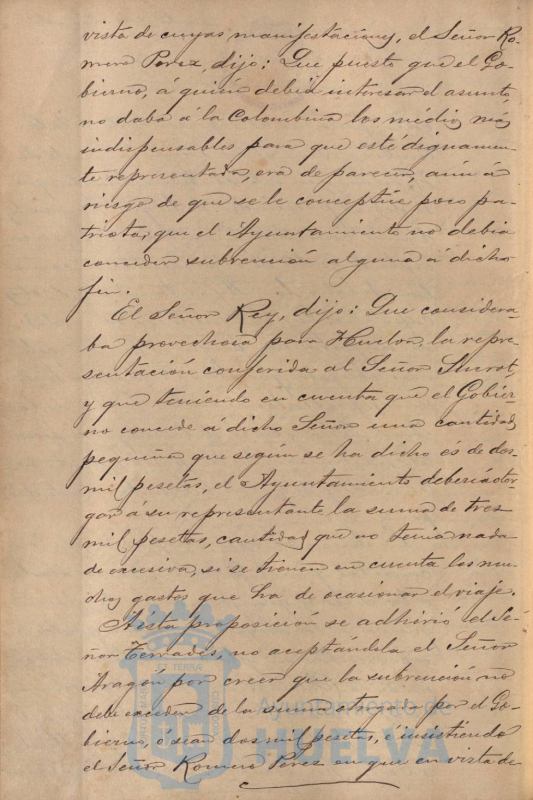 vista de cuyas manifestaciones, el Señor Ro-
mero Perez, dijo: Que puesto que el Go-
bierno, á quien debia interesar el asunto,
no daba á la Colombina los médios más
indispensables para que esté dignamen-
te representada, era de parecer, aún á
riesgo de que se le conceptúe poco pa-
triota, que el Ayuntamiento no debia
conceder subvención alguna á dicho
fin.
El Señor Rey, dijo: Que considera-
ba provechosa para Huelva, la repre-
sentación conferida al Señor
y que teniendo en cuenta que el Gobier-
no concede á dicho Señor una cantidad
pequeña que según se ha dicho és de dos
mil pesetas, el Ayuntamiento deberia otor-
gar á su representante la suma de tres
mil pesetas, cantidad que no tenia nada
de excesiva, si se tienen en cuenta los mu-
chos gastos que ha de ocasionar el viaje.
A esta proposición se adhirió el Se-
ñor Terrades, no aceptándola el Señor
Aragón por creer que la subvención no
debe exceder de la suma otorgada por el Go-
bierno, ó sean dos mil pesetas, é insistiendo
el Señor Romero Pérez en que en vista de
ET TERRAE
Ayuntamiento de
HUELVA